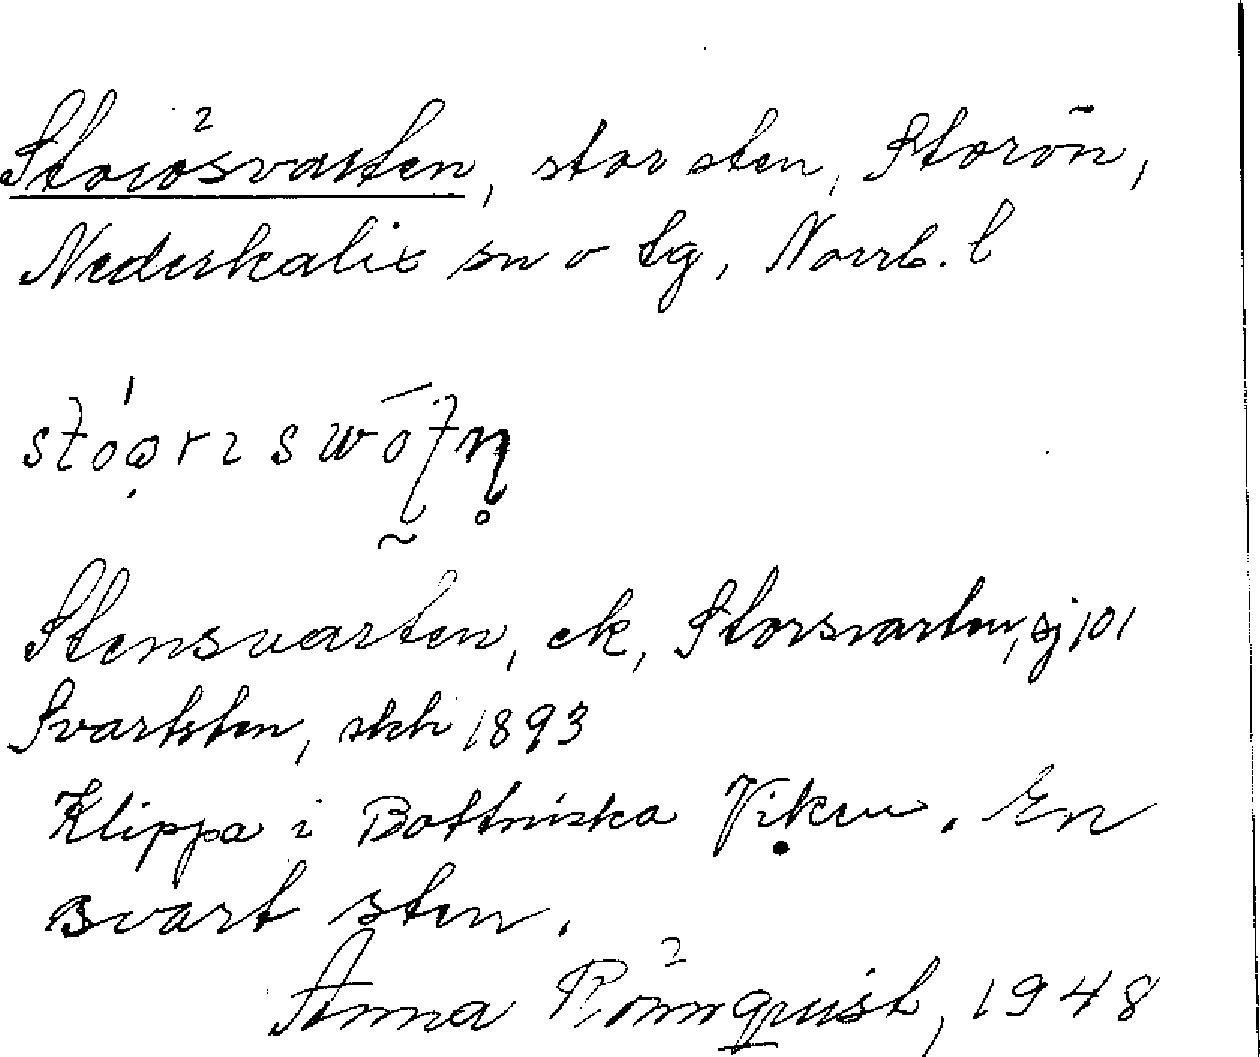 Storösvarten, stor sten, Storön,
Nederkalix sn o tg, Norrb. l
Stensvarten, ek, Storsvarten, sj 101
Svartsten, skh 1893
Klippa i Bottniska Viken. En
svart sten.
Anna Rönnquist, 1948